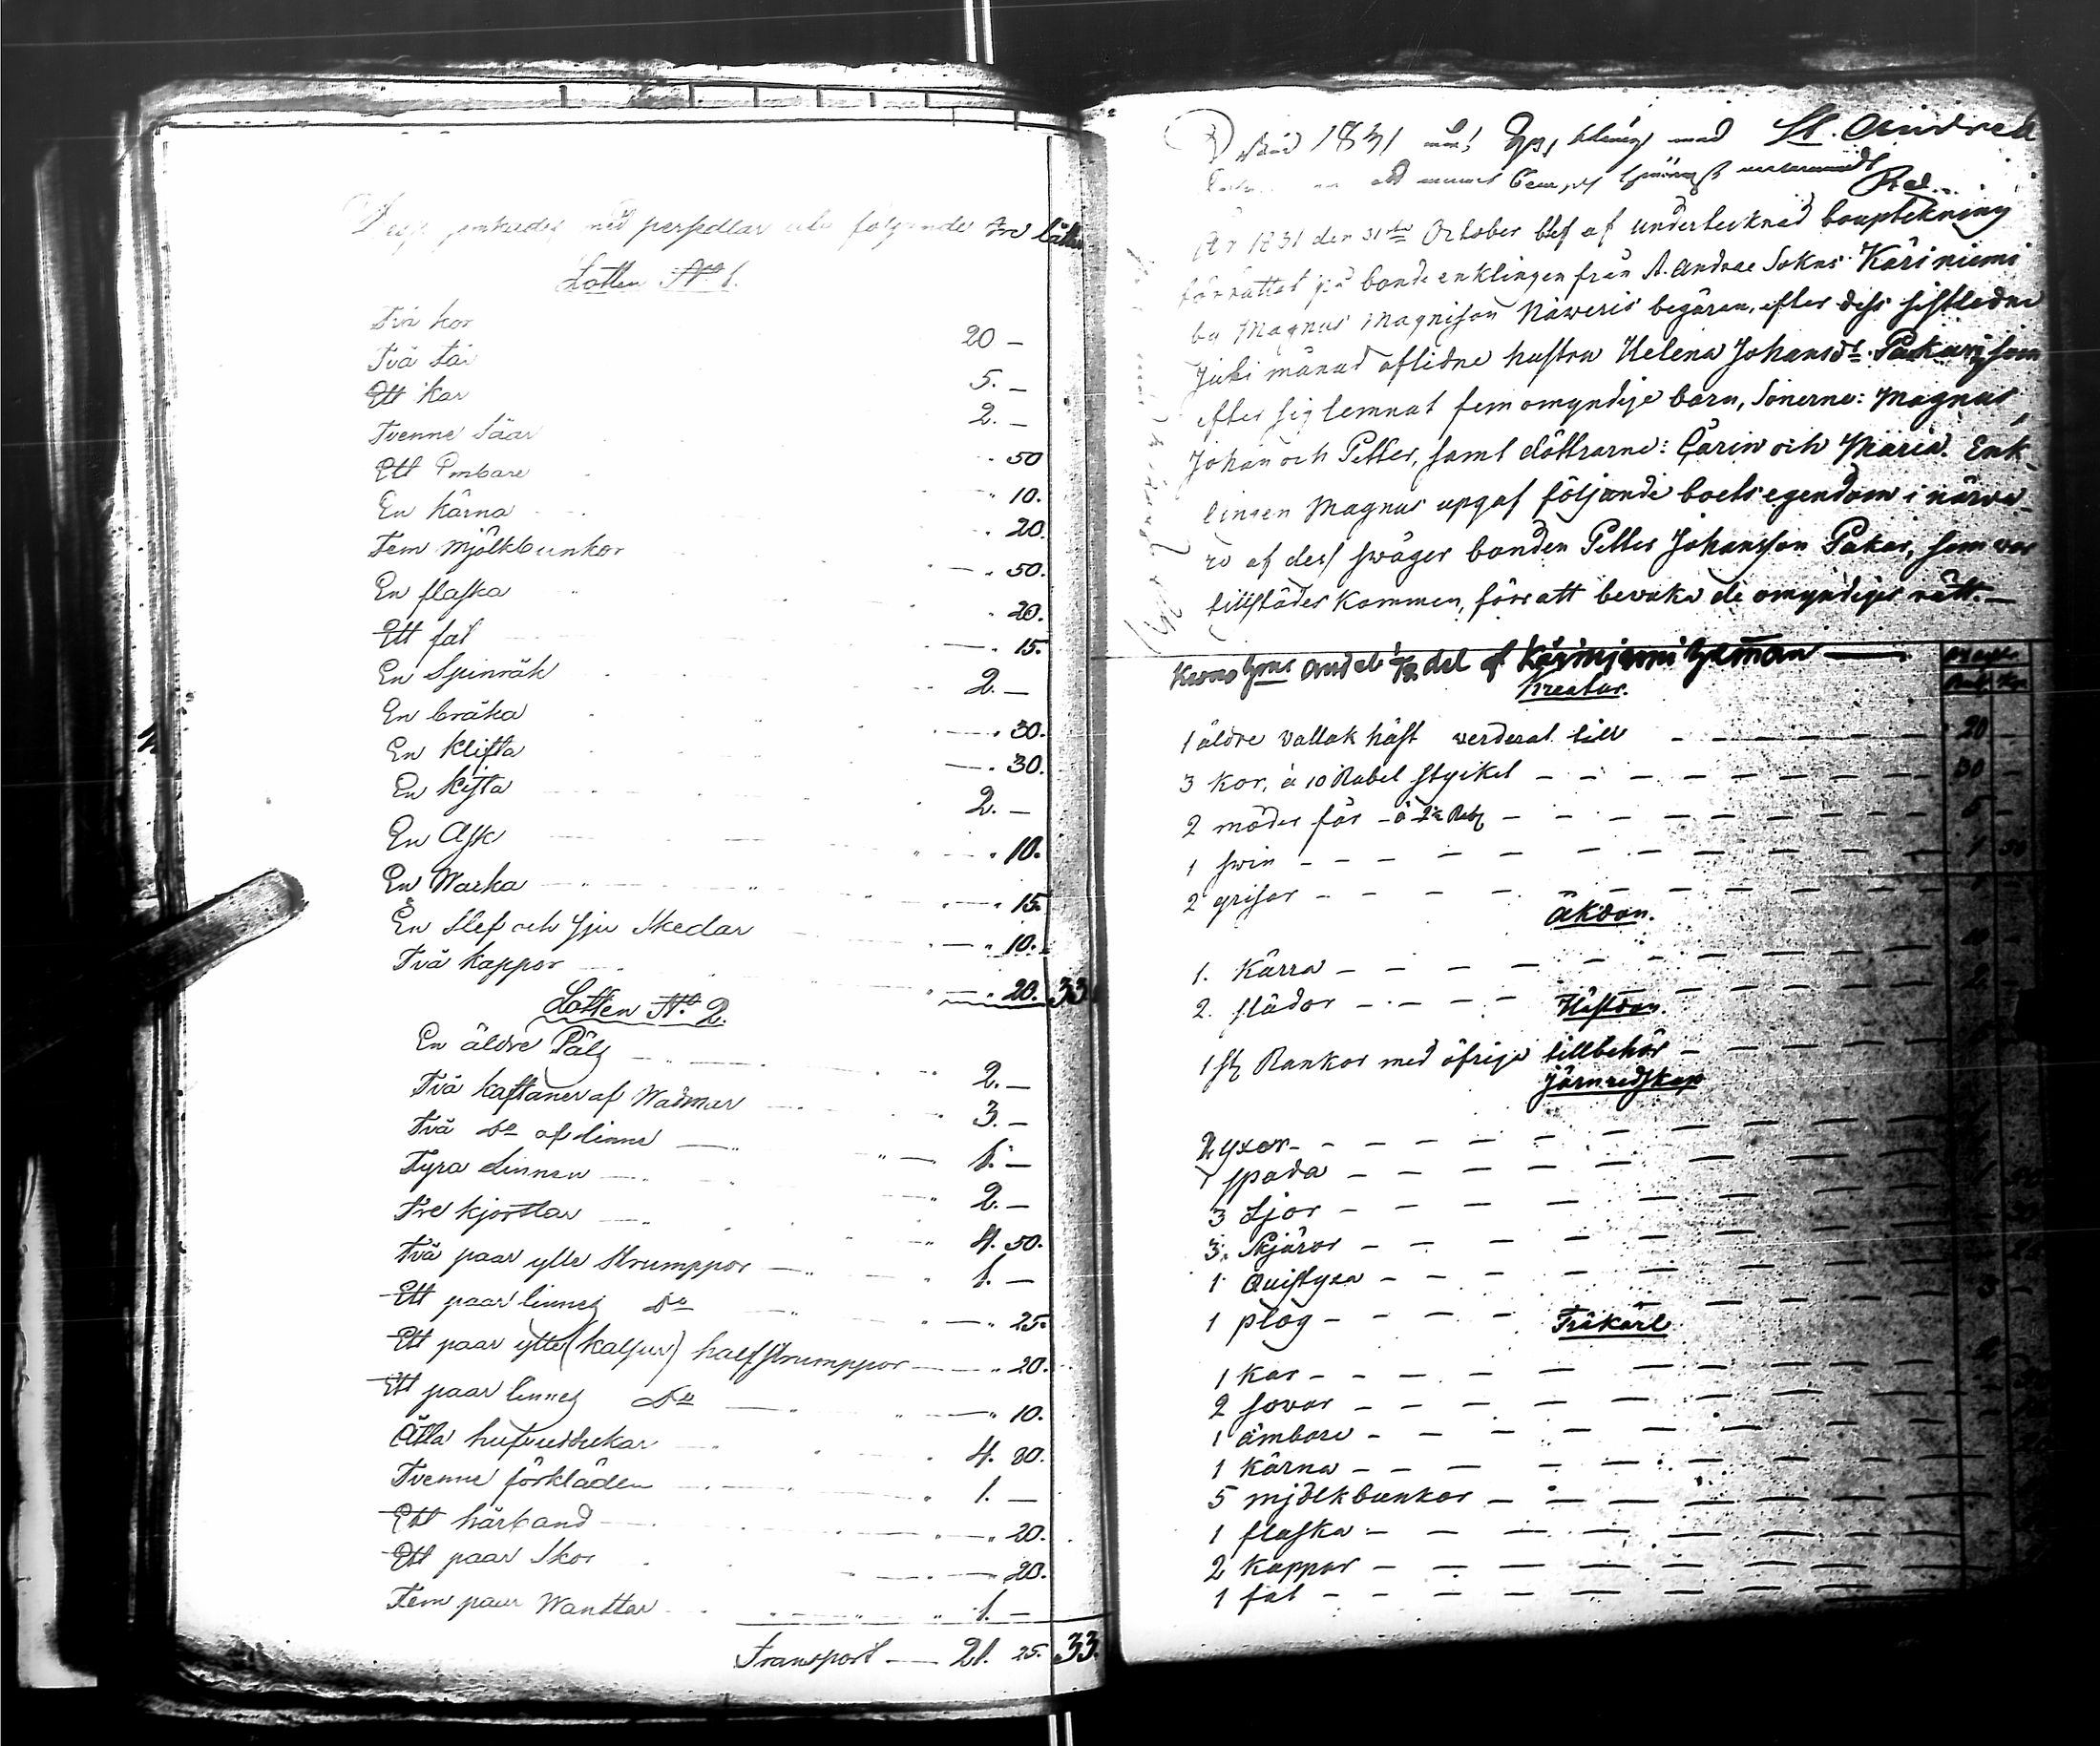 med persedlar följande tre lätter
Lotten No 1.
Två kor 20 —
Två får 5. —
Ett kar 2. —
Tvenne Såar 50
Ett Embare 10.
En kärna 20.
Fem mjölkbunkor 50.
En flaska 20.
Ett fat 15.
En Spinråk 2. —
En bråka 30.
En klifta 30.
En kista 2. —
En Ask 10.
En Warka 15.
En slef och sju Skedar 10.
Två kappor 20. 33
Lotten No 2.
En äldre Päls 2. —
Två kaftaner af Wadmar 3. —
Två do af linne 1. —
Fyra Linnen 2. —
Tre kjortlar 4. 50.
Två paar ylle Strumppor 1. —
Ett paar linnes do 25.
Ett paar ylle (kalsur) halfstrumppor 20.
Ett paar linnes do 10.
Åtta hufvuddukar 4. 80.
Tvenne förkläden 1. —
Ett hårband 20.
Ett paar Skor 20.
Fem paar Wanttar 1. —
Transport 21. 25. 33.
1831 med St. Andreæ
År 1831 den 31sta October blef af undertecknad bouptekning
förrättat på bonde enklingen från St. Andrae Sokns Käriniemi
by Magnus Magnisson Näweris begäran, efter dess sistledne
Juli månad aflidne hustru Helena Johansdr. Pakari, som
efter sig lemnat fem omyndige barn, Sönerne: Magnus,
Johan och Petter, samt döttrarne: Carin och Maria. Enk-
lingen Magnus upgaf följande boets egendom i närva-
ro af dess swåger bonden Petter Johansson Pakar, som var
tillstädes kommen, för att bevaka de omyndiges rätt. —
Krono Hms andel 1/12 del af Kärinjemi Heman
Kreatur.
1 äldre vallak häst verderat till 20
3 kor, à 10 Rubel stycket 30 —
2 moder får à 2½ Rub. 5 —
1 swin 1 50
2 grisar
Åkdon.
1. Kärra
2. slädor
Hästdon.
1 st. Rankor med öfrige tillbehör
Järnredskap
2 yxor
1 spada
3 Ljor
3. Skjäror
1 Quistyxa
1 plog
Träkäril
1 kar
2 sovar
1 ämbare
1 kärna
5 mjölkbunkor
1 flaska
2 kappor
1 fat